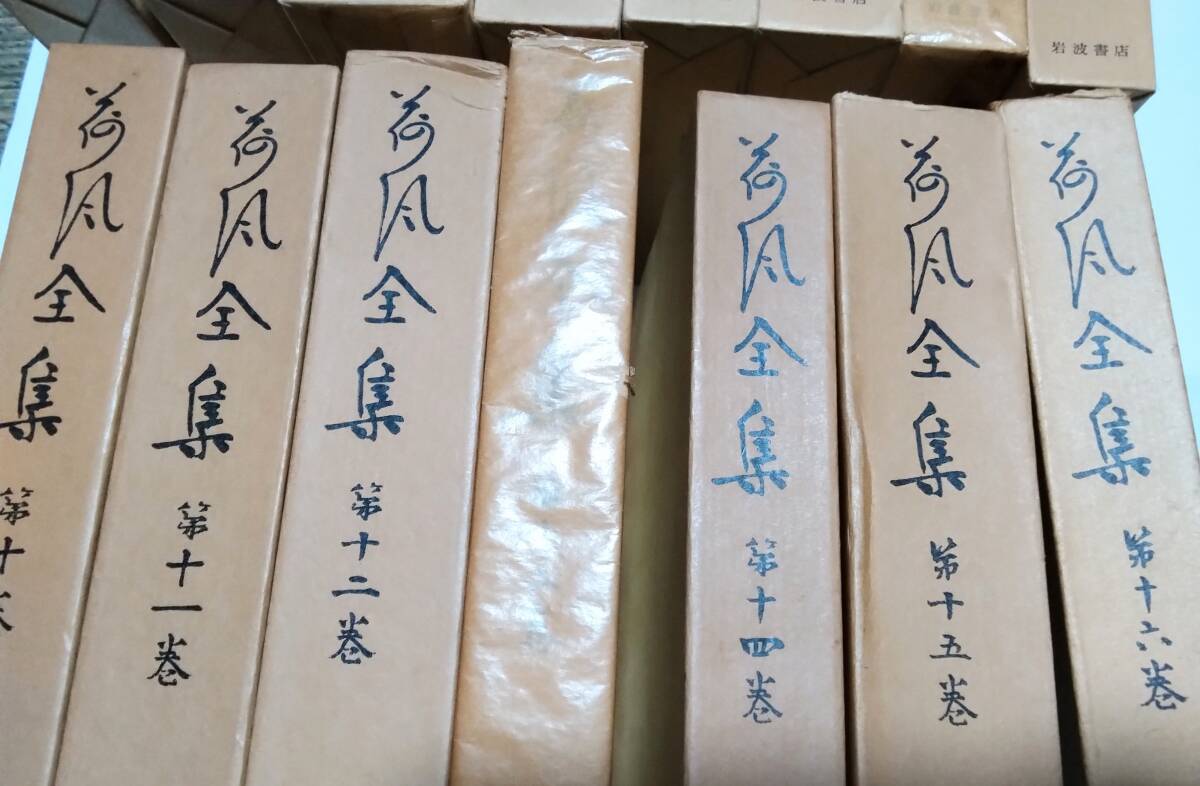 岩波書店
荷風全集 第十
荷風全集 第十一巻
荷風全集 第十二巻
荷風全集 第十四巻
荷風全集 第十五巻
荷風全集 第十六巻